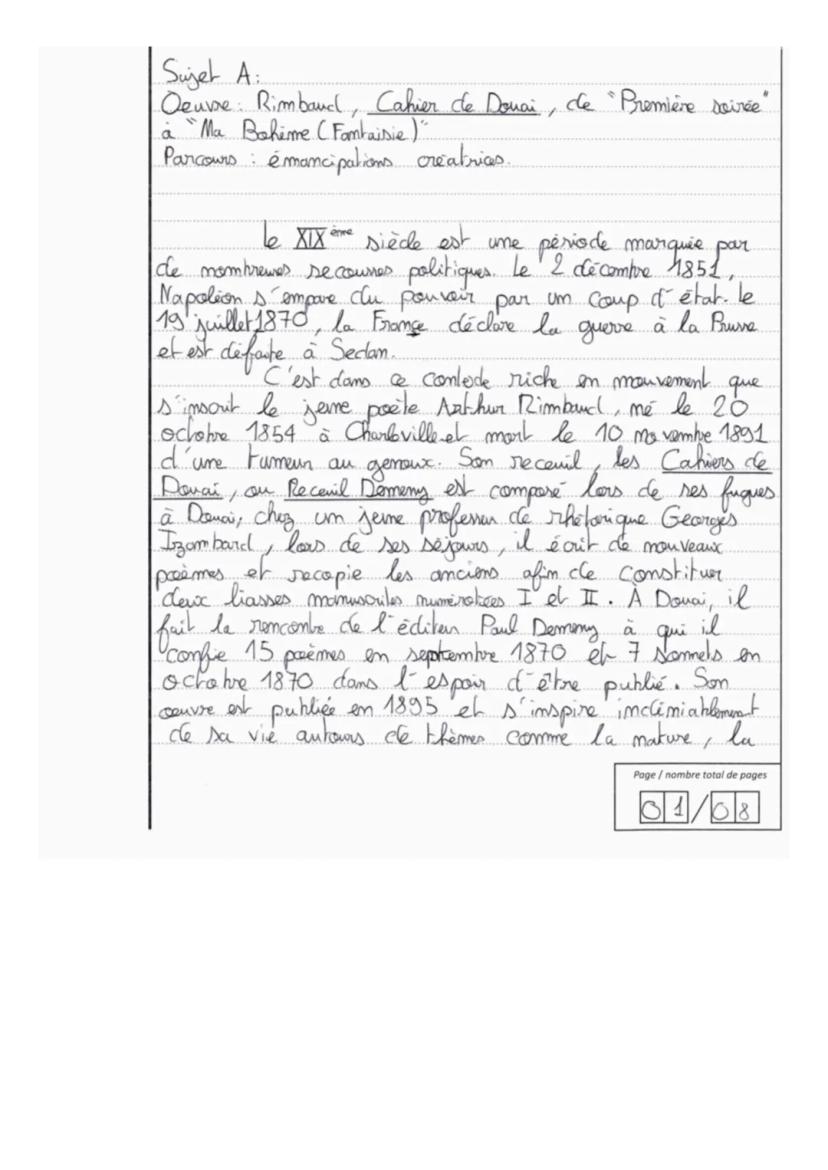 Sujet A:
Oeuvre : Rimbaud, Cahier de Douai, de "Première soirée"
à "Ma Bohème (Fantaisie)"
Parcours : émancipations créatrices.
Le XIXème siècle est une période marquée par
de nombreuses secousses politiques. Le 2 décembre 1851,
Napoléon s'empare du pouvoir par un coup d'état. Le
19 juillet 1870, la France déclare la guerre à la Prusse
et est défaite à Sedan.
C'est dans ce contexte riche en mouvement que
s'inscrit le jeune poète Arthur Rimbaud, né le 20
octobre 1854 à Charleville et mort le 10 novembre 1891
d'une tumeur au genoux. Son receuil, les Cahiers de
Douai, ou Receuil Demeny est composé lors de ses fugues
à Douai, chez un jeune professeur de rhétorique Georges
Izambard, lors de ses séjours, il écrit de nouveaux
poèmes et recopie les anciens afin de constituer
deux liasses manuscrites numérotées I et II. À Douai, il
fait la rencontre de l'éditeur Paul Demeny à qui il
confie 15 poèmes en septembre 1870 et 7 sonnets en
octobre 1870 dans l'espoir d'être publié. Son
oeuvre est publiée en 1895 et s'inspire indéniablement
de sa vie autours de thèmes comme la nature, la
Page / nombre total de pages
01/08